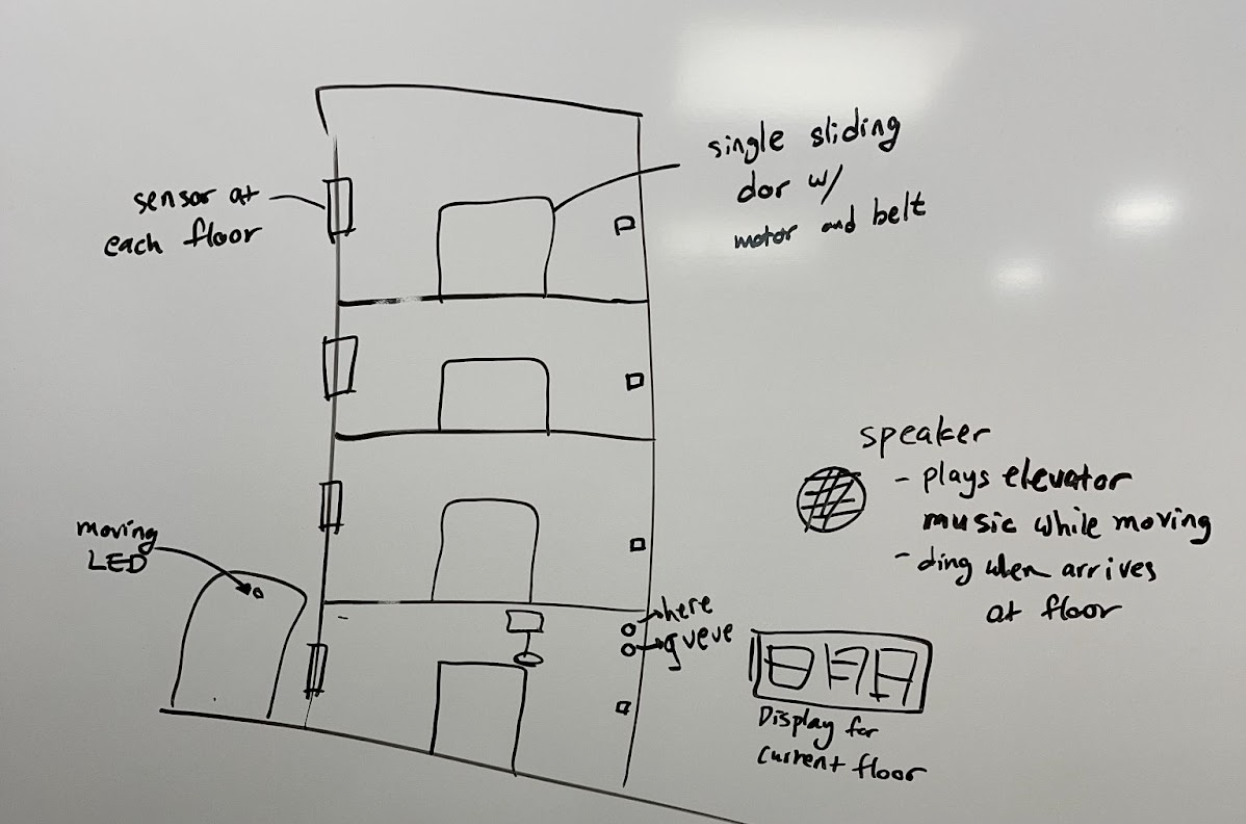 sensor at
each floor
single sliding
dor w/
motor and belt
speaker
- plays elevator
music while moving
- ding when arrives
at floor
moving
LED
here
queue
Display for
current floor